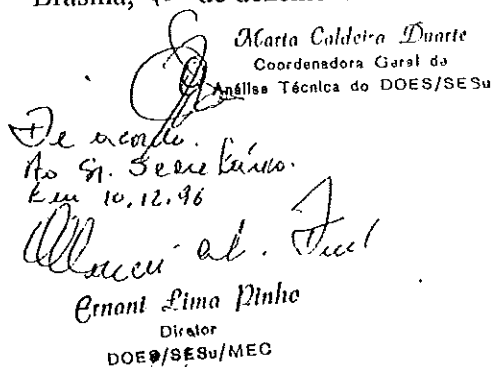 Brasília, de dezembro
Marta Caldeira Duarte
Coordenadora Geral de
Análise Técnica do DOES/SESu
De acordo.
Ao Sr. Secretário.
Em 10.12.96
Ernani Lima Pinho
Diretor
DOES/SESu/MEC